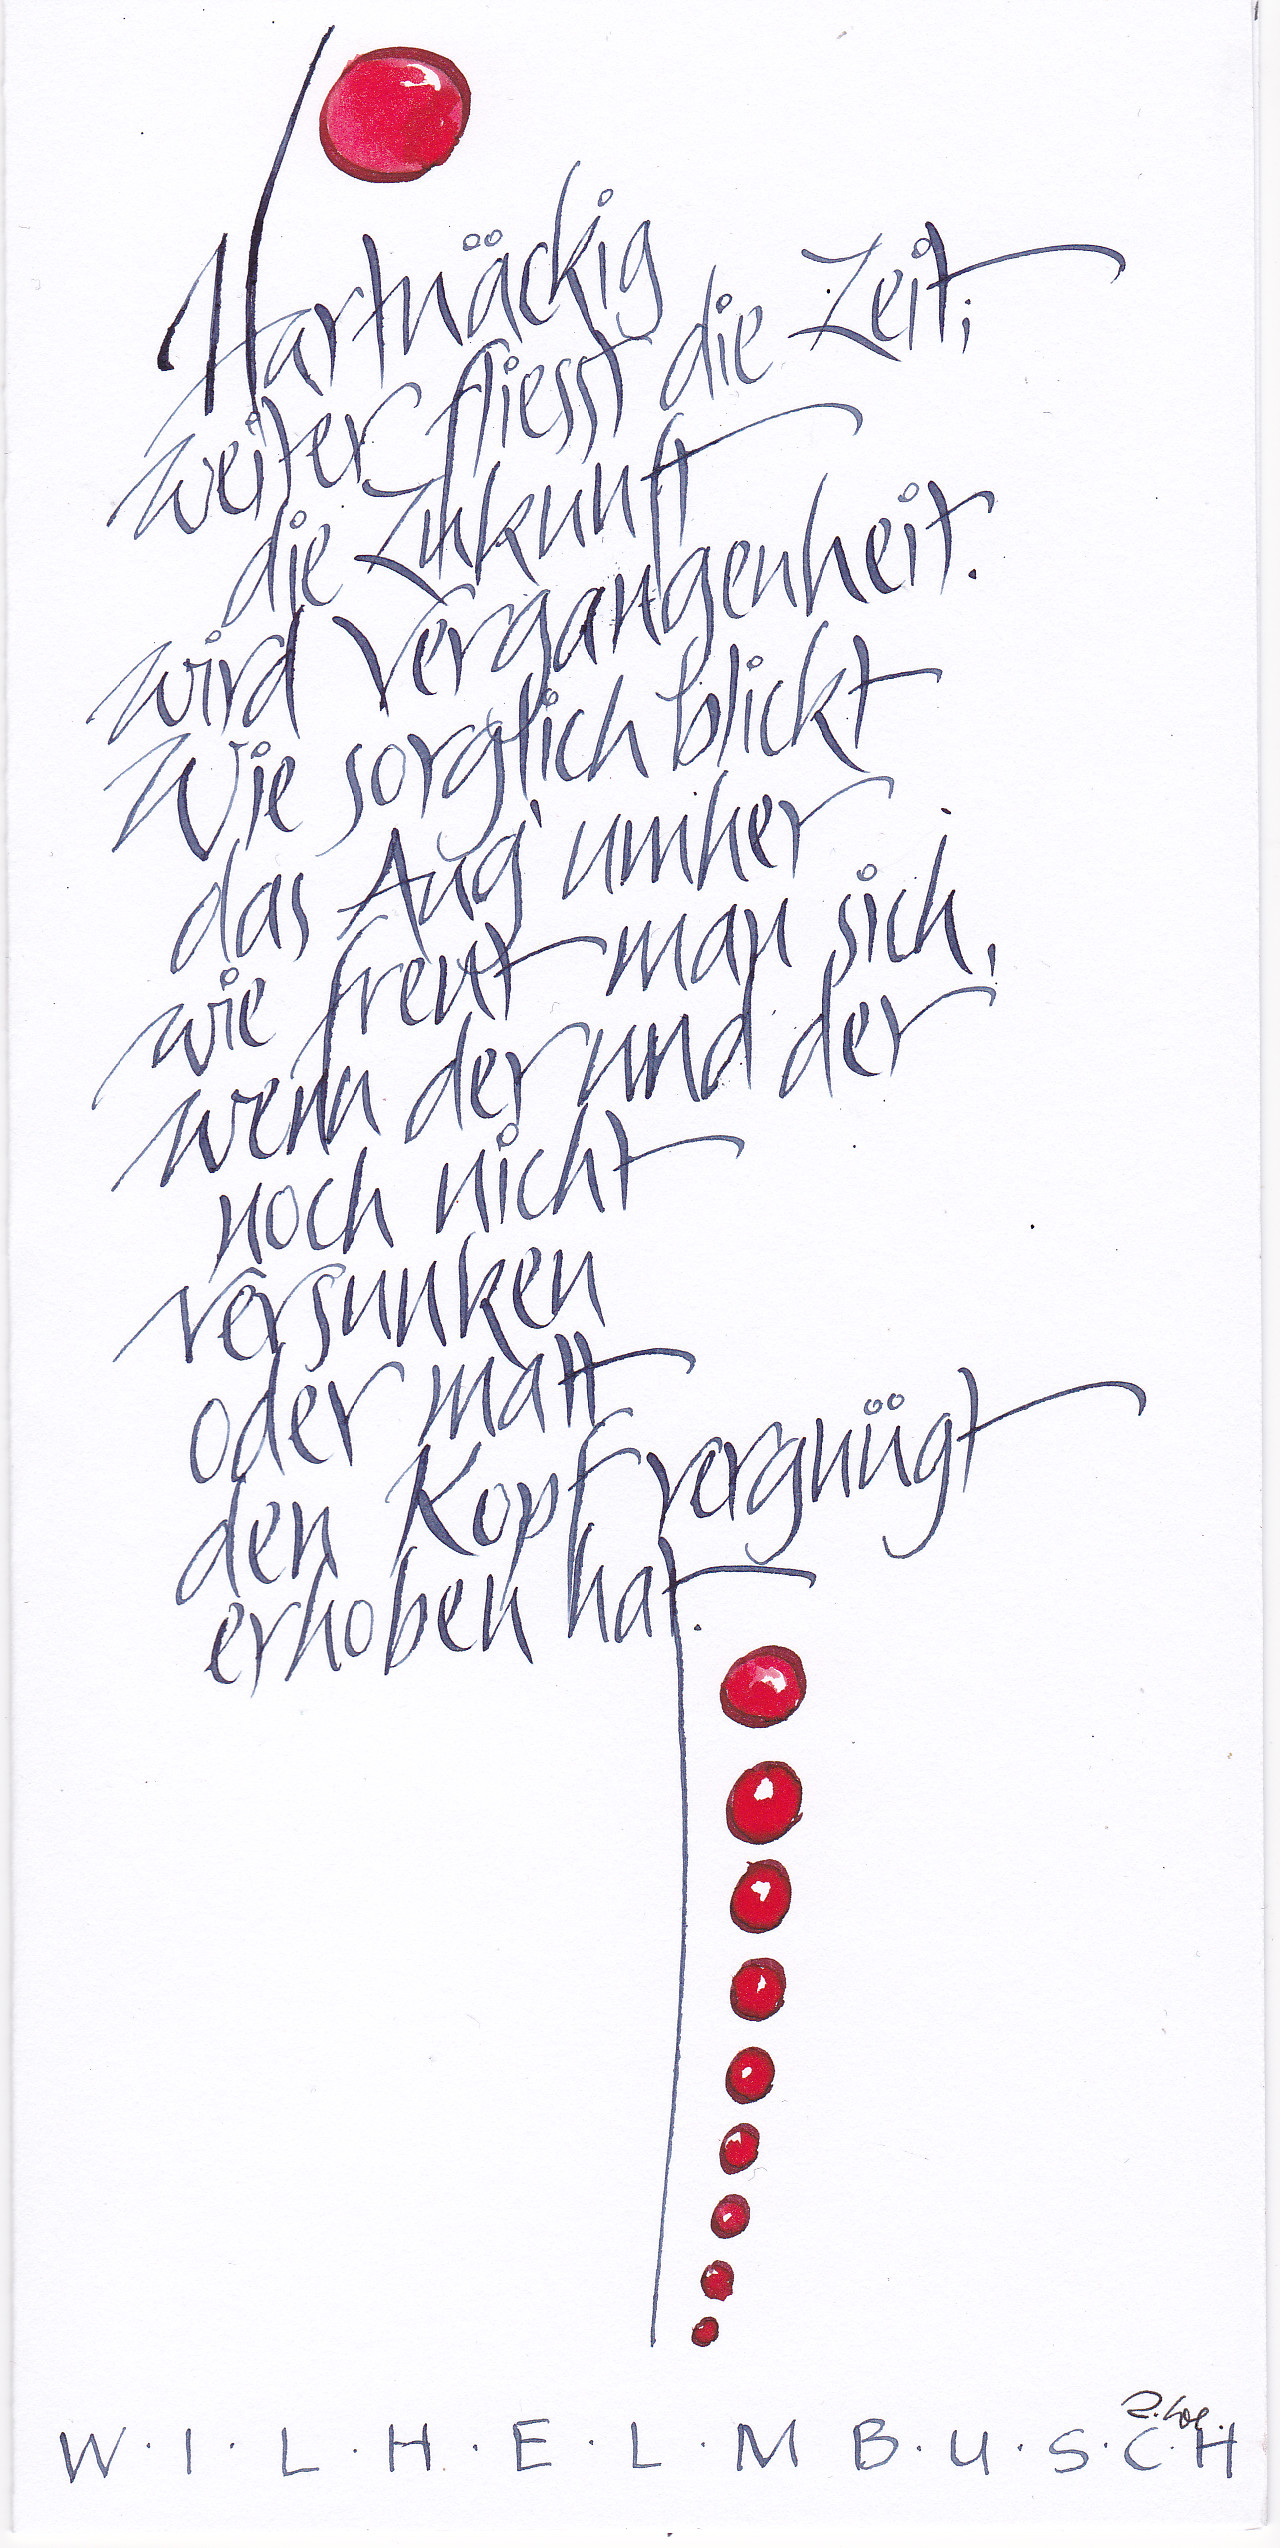 Hartnäckig
weiter fliesst die Zeit;
die Zukunft
wird Vergangenheit.
Wie sorglich blickt
das Aug' umher
wie freut man sich,
wenn der und der
noch nicht
versunken
oder matt
den Kopf vergnügt
erhoben hat.
W·I·L·H·E·L·M B·U·S·C·H